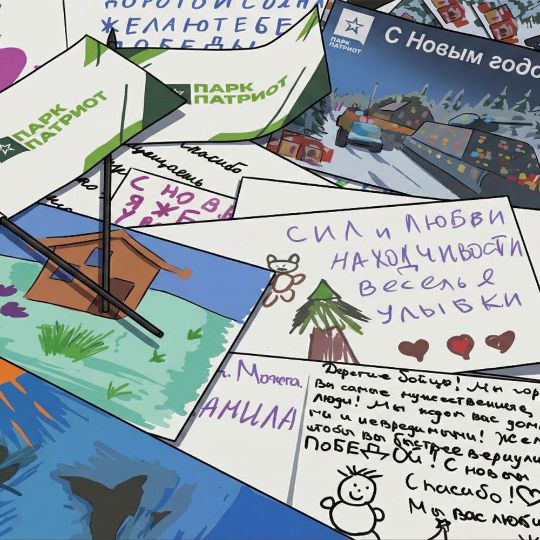 ДОРОГОЙ СОЛДАТ
ЖЕЛАЮ ТЕБЕ
ПОБЕДЫ
ПАРК
ПАТРИОТ
ПАРК
ПАТРИОТ
ПАРК
ПАТРИОТ
С Новым годо
спасибо
С НОВ
СИЛ и ЛЮБВИ
НАХОДЧИВОСТИ
ВЕСЕЛЬЯ
УЛЫБКИ
АМИЛА
Дорогие бойцы! Мы гор
Вы самые мужественные
люди! Мы ждем вас дома
ми и невредимыми! Жел
чтобы вы быстрее вернули
ПОБЕДОЙ! С новым
Спасибо!
Мы вас люби